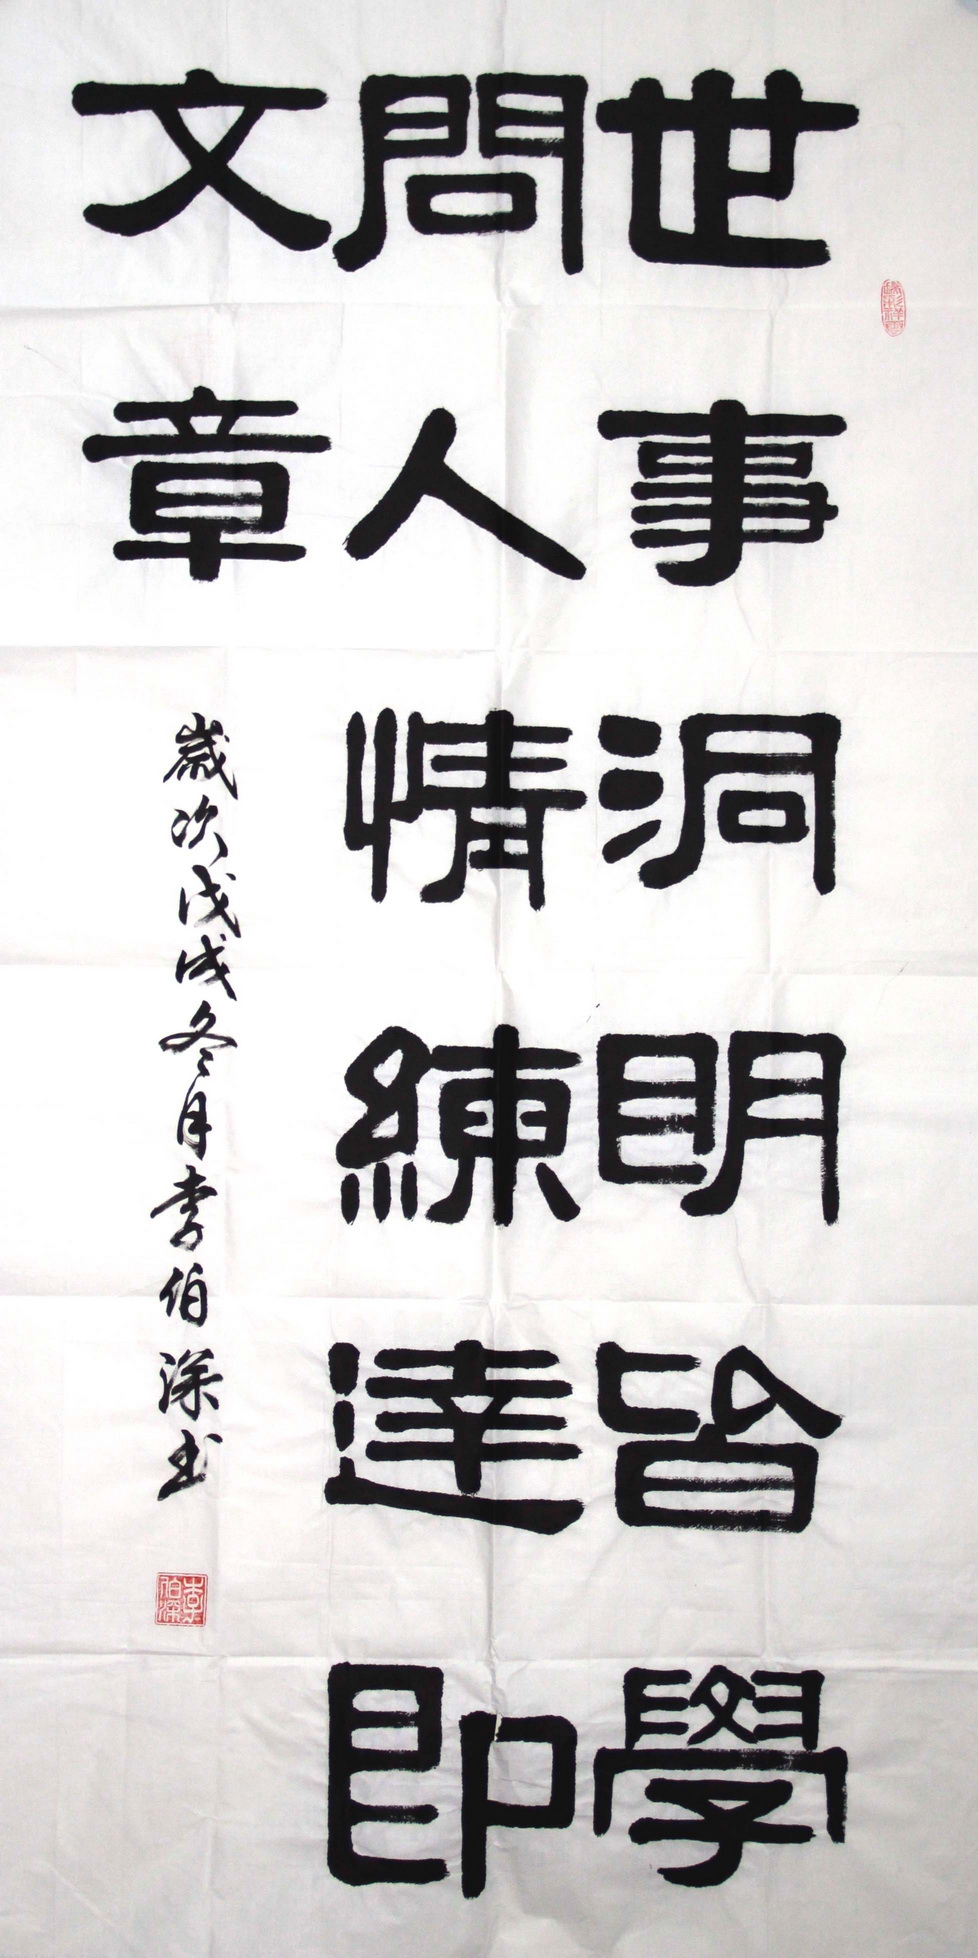 世事洞明皆學
問人情練達即
文章
歲次戊戌冬月李伯深书
李伯深